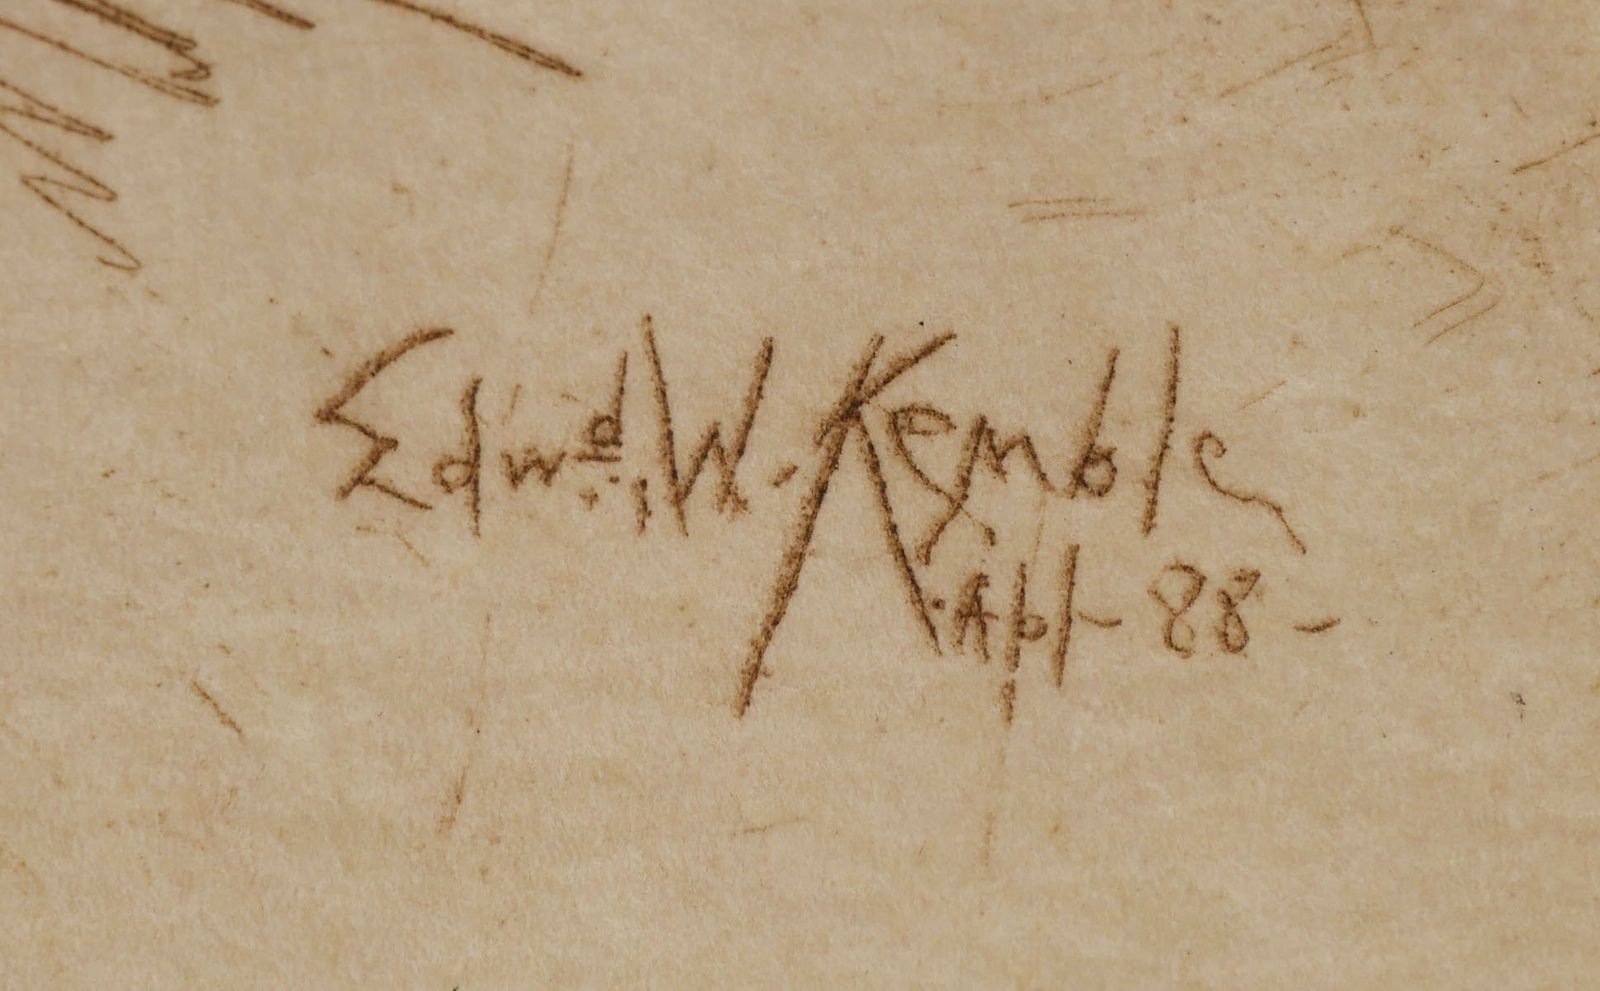 Edwd. W. Kemble
Apl- 88-